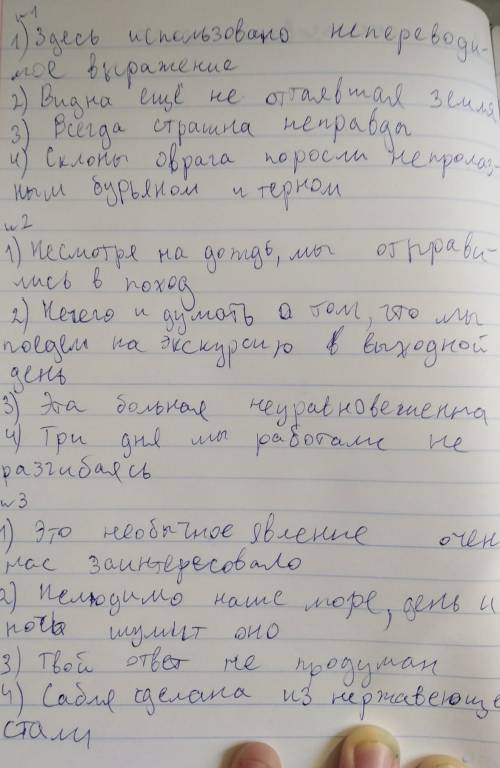 №1
1) Здесь использовано непереводи-
мое выражение
2) Видна ещё не оттаявшая земля
3) Всегда страшна неправды
4) Склоны оврага поросли непролаз-
ным бурьяном и терном
№2
1) Несмотря на дождь, мы отправи-
лись в поход
2) Нечего и думать о том, что мы
поедем на экскурсию в выходной
день
3) Эта больная неуравновешенна
4) Три дня мы работали не
разгибаясь
№3
1) Это необычное явление очен
нас заинтересовало
2) Нелюдимо наше море, день и
ночь шумит оно
3) Твой ответ не продуман
4) Сабля сделана из нержавеюще
стали